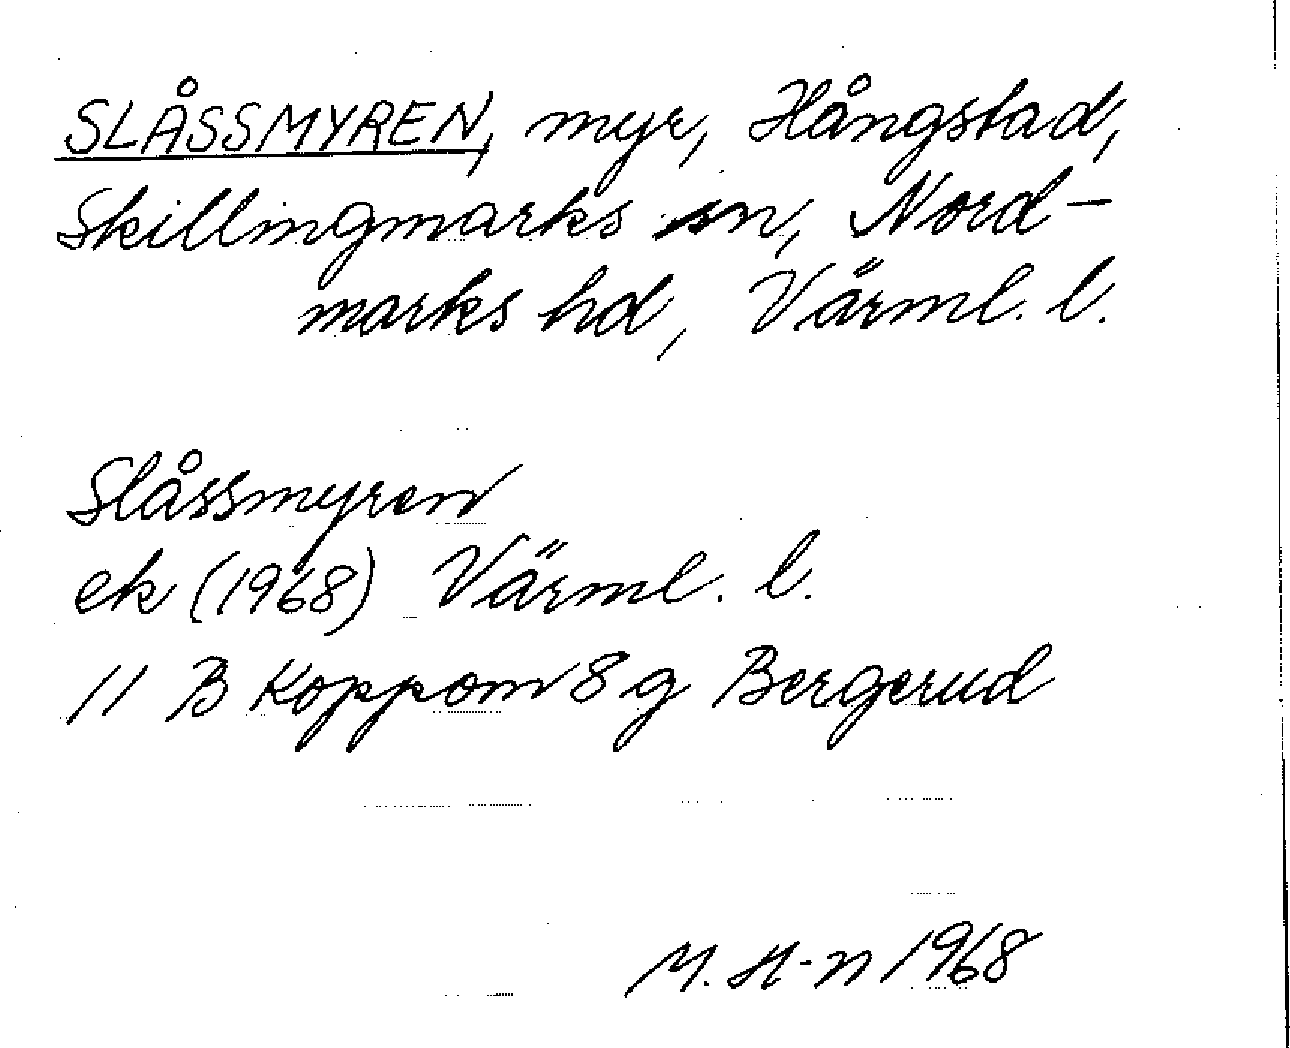 SLÅSSMYREN, myr, Hångstad,
Skillingmarks sn, Nord-
marks hd, Värml. l.
Slåssmyren
ek (1968) Värml. l.
11 B Koppom 8 g Bergerud
M. H-n 1968